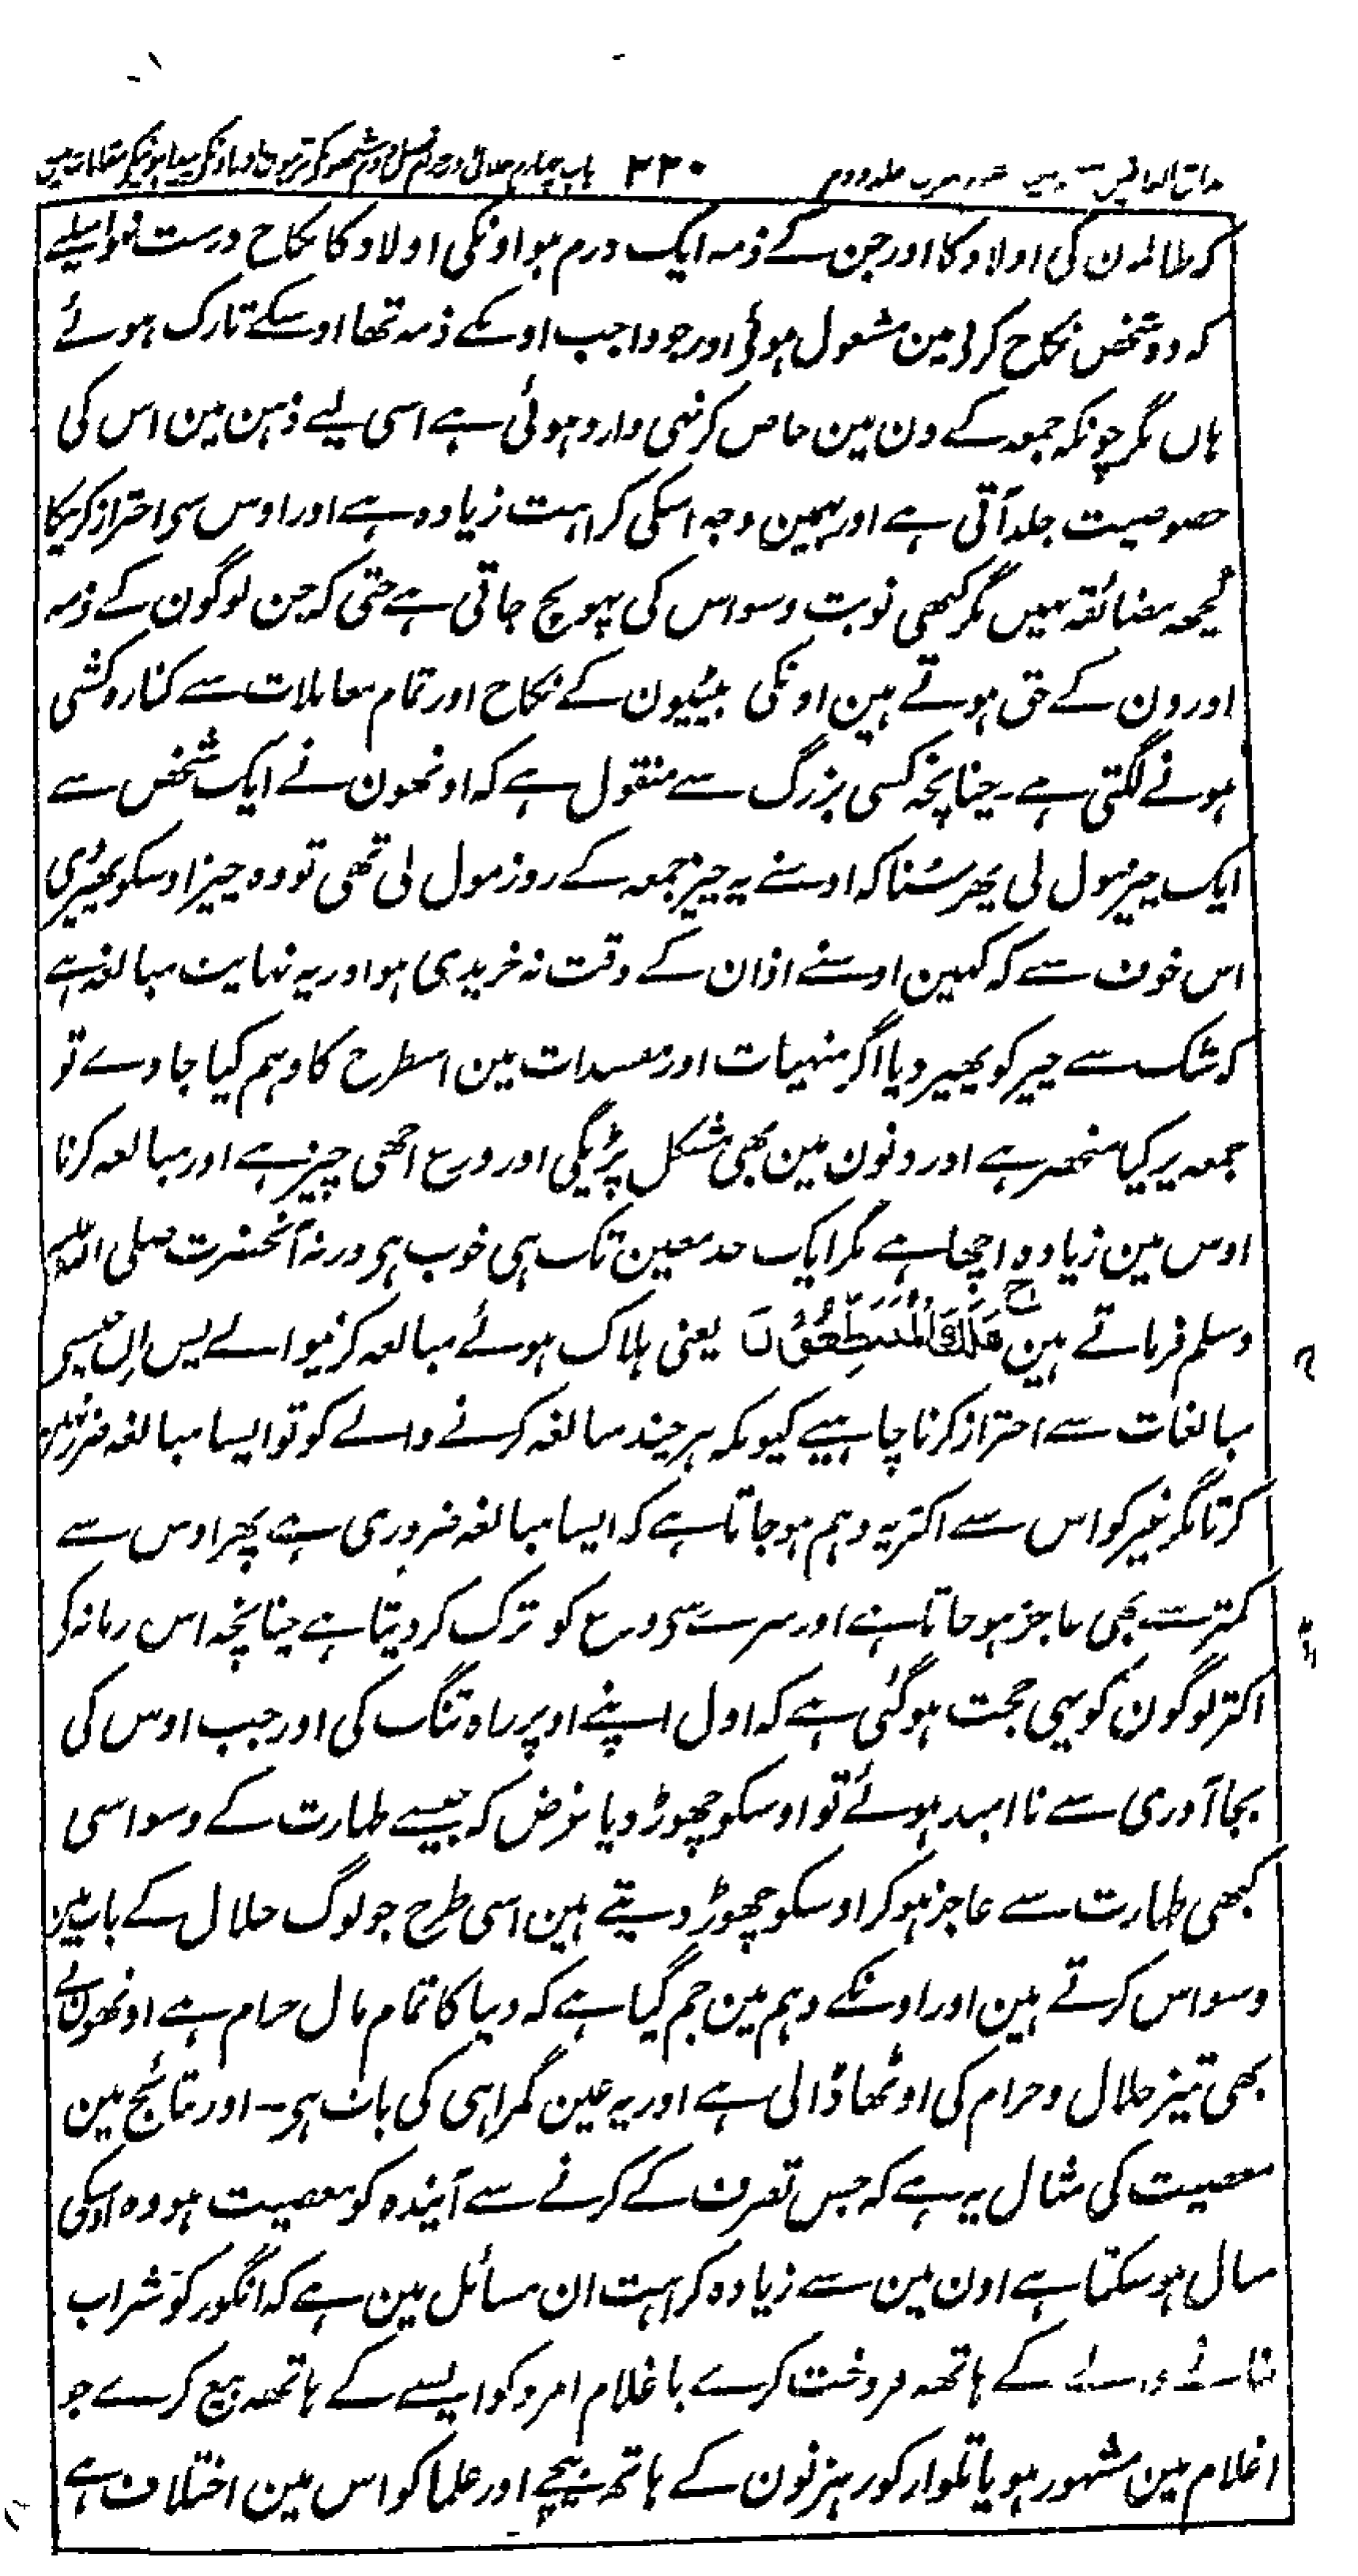 ۲۳۰
کہ ظالمون کی اولاد کا اور جن کے ذمہ ایک درم ہو اونکی اولاد کا نکاح درست نہو اسلیے
کہ وہ شخص نکاح کرنے مین مشغول ہوئے اور جو واجب اوسکے ذمہ تھا اوسکے تارک ہوئے
ہاں مگر چونکہ جمعہ کے دن مین خاص کر نہی وارد ہوئی ہے اسی لیے ذہن مین اس کی
خصوصیت جلد آتی ہے اور ہمین وجہ اسکی کراہت زیادہ ہے اور اوس سے احتراز کرنیکا
کچھ مضائقہ نہیں مگر کبھی نوبت وسواس کی پہونچ جاتی ہے حتی کہ جن لوگون کے ذمہ
اورون کے حق ہوتے ہین اونکی بیٹیون کے نکاح اور تمام معاملات سے کنارہ کشی
ہونے لگتی ہے۔ چنانچہ کسی بزرگ سے منقول ہے کہ اونھون نے ایک شخص سے
ایک چیز مول لی پھر سُنا کہ اوسنے یہ چیز جمعہ کے روز مول لی تھی تو وہ چیز اوسکو پھیر دی
اس خوف سے کہ کہین اوسنے اذان کے وقت نہ خریدی ہو اور یہ نہایت مبالغہ ہے
کہ شک سے چیز کو پھیر دیا اگر منہیات اور مفسدات مین اسطرح کا وہم کیا جاوے تو
جمعہ پر کیا منحصر ہے اور دنون مین بھی مشکل پڑیگی اور ورع اچھی چیز ہے اور مبالغہ کرنا
اوس مین زیادہ اچھا ہے مگر ایک حد معین تک ہی خوب ہی ورنہ آنحضرت صلی اللہ علیہ
وسلم فرماتے ہین ھَلَكَ الْمُتَنَطِّعُوْنَ یعنی ہلاک ہوئے مبالغہ کرنیوالے پس اِس جیسے
مبالغات سے احتراز کرنا چاہیے کیونکہ ہر چند مبالغہ کرنے والے کو تو ایسا مبالغہ ضرر نہین
کرتا مگر غیر کو اس سے اکثر یہ وہم ہو جاتا ہے کہ ایسا مبالغہ ضروری ہے پھر اوس سے
کمتر سے بھی عاجز ہو جاتا ہے اور سرے سے ورع کو ترک کر دیتا ہے چنانچہ اس زمانہ کے
اکثر لوگون کو یہی حجت ہو گئی ہے کہ اول اپنے اوپر راہ تنگ کی اور جب اوس کی
بجا آوری سے نا امید ہوئے تو اوسکو چھوڑ دیا غرض کہ جیسے طہارت کے وسواسی
کبھی طہارت سے عاجز ہو کر اوسکو چھوڑ دیتے ہین اسی طرح جو لوگ حلال کے باب مین
وسواس کرتے ہین اور اونکے وہم مین جم گیا ہے کہ دنیا کا تمام مال حرام ہے اونھون نے
بھی تمیز حلال و حرام کی اوٹھا ڈالی ہے اور یہ عین گمراہی کی بات ہی۔ اور نتائج مین
معصیت کی مثال یہ ہے کہ جس تصرف کے کرنے سے آیندہ کو معصیت ہو وہ اوسکی
مثال ہو سکتا ہے اون مین سے زیادہ کراہت ان مسائل مین ہے کہ انگور کو شراب
بنانے والے کے ہاتھ فروخت کرے یا غلام امرد کو ایسے کے ہاتھ بیع کرے جو
اغلام مین مشہور ہو یا تلوار کو رہزنون کے ہاتھ بیچے اور علما کو اس مین اختلاف ہے